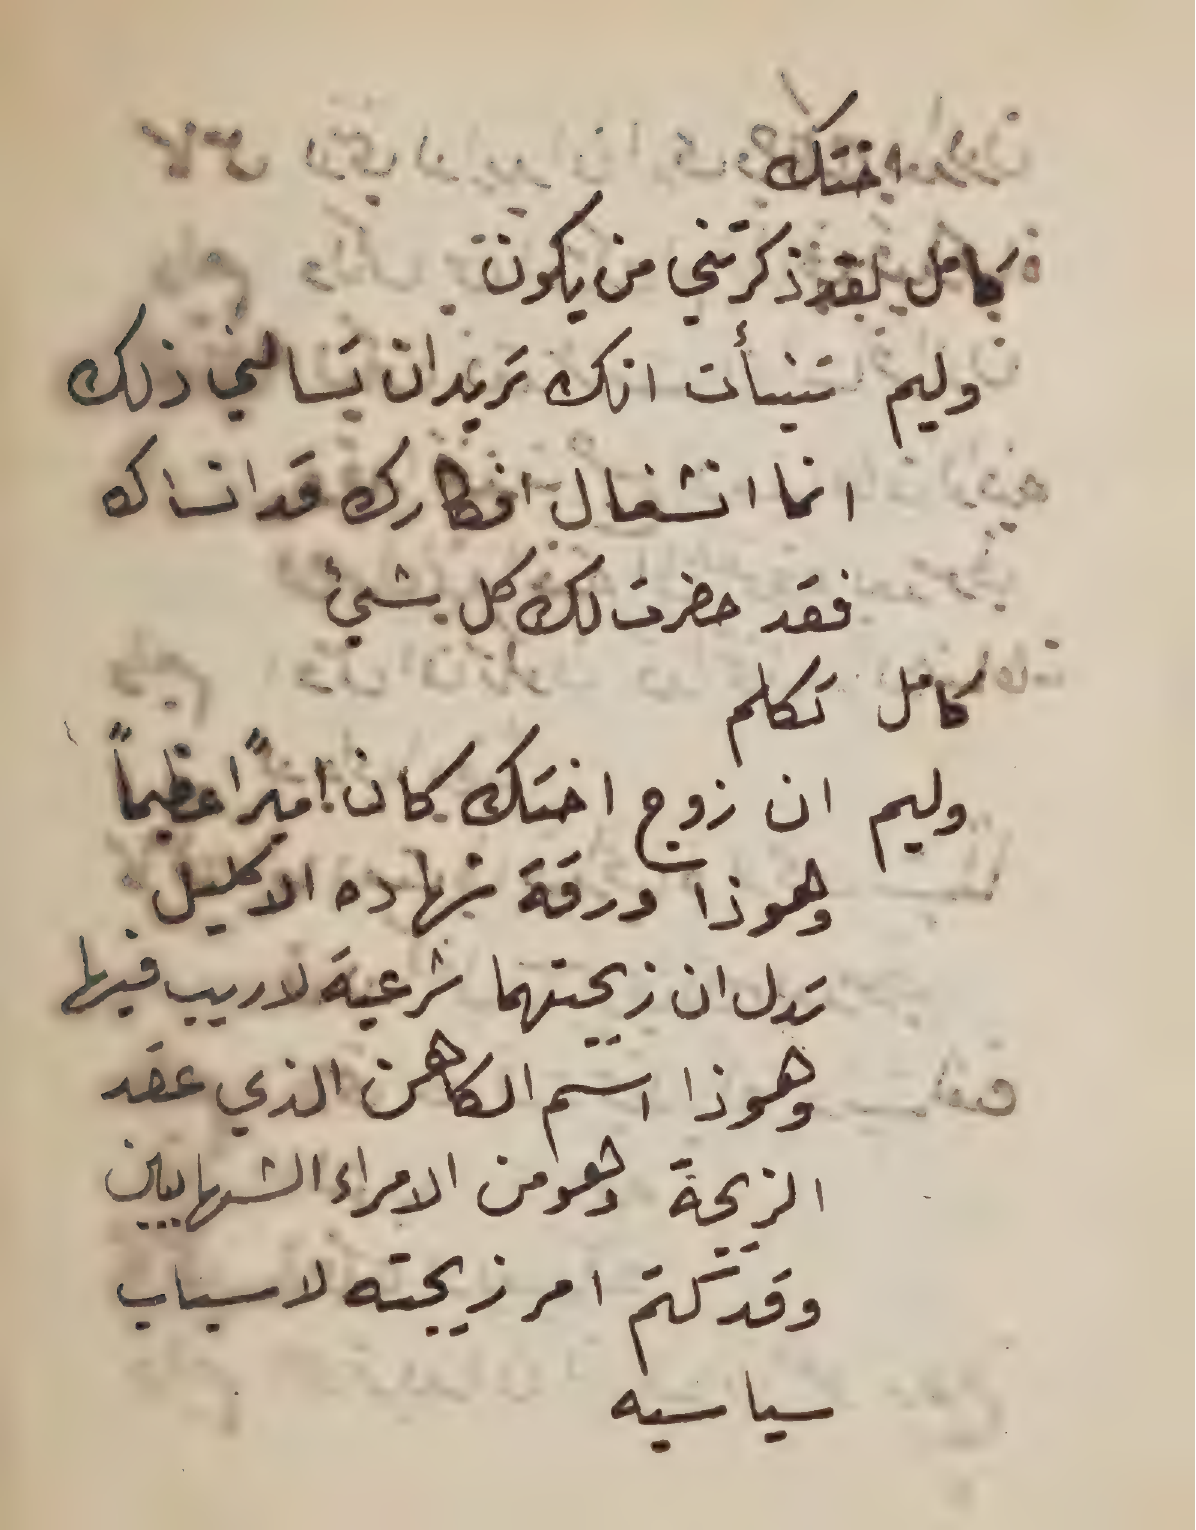 اختك
كامل لقد ذكرتني من يكون
وليم تنبأت انك تريد ان تسالني ذلك
انما انشغال افكارك قد انساك
فقد حضرت لك كل شيئ
كامل تكلم
وليم ان زوج اختك كان اميرًا عظيماً
وهوذا ورقة شهاده الاكليل
تدل ان زيجتهما شرعية لا ريب فيها
وهوذا اسم الكاهن الذي عقد
الزيجة وهو من الامراء الشهابيين
وقد كتم امر زيجته لاسباب
سياسيه